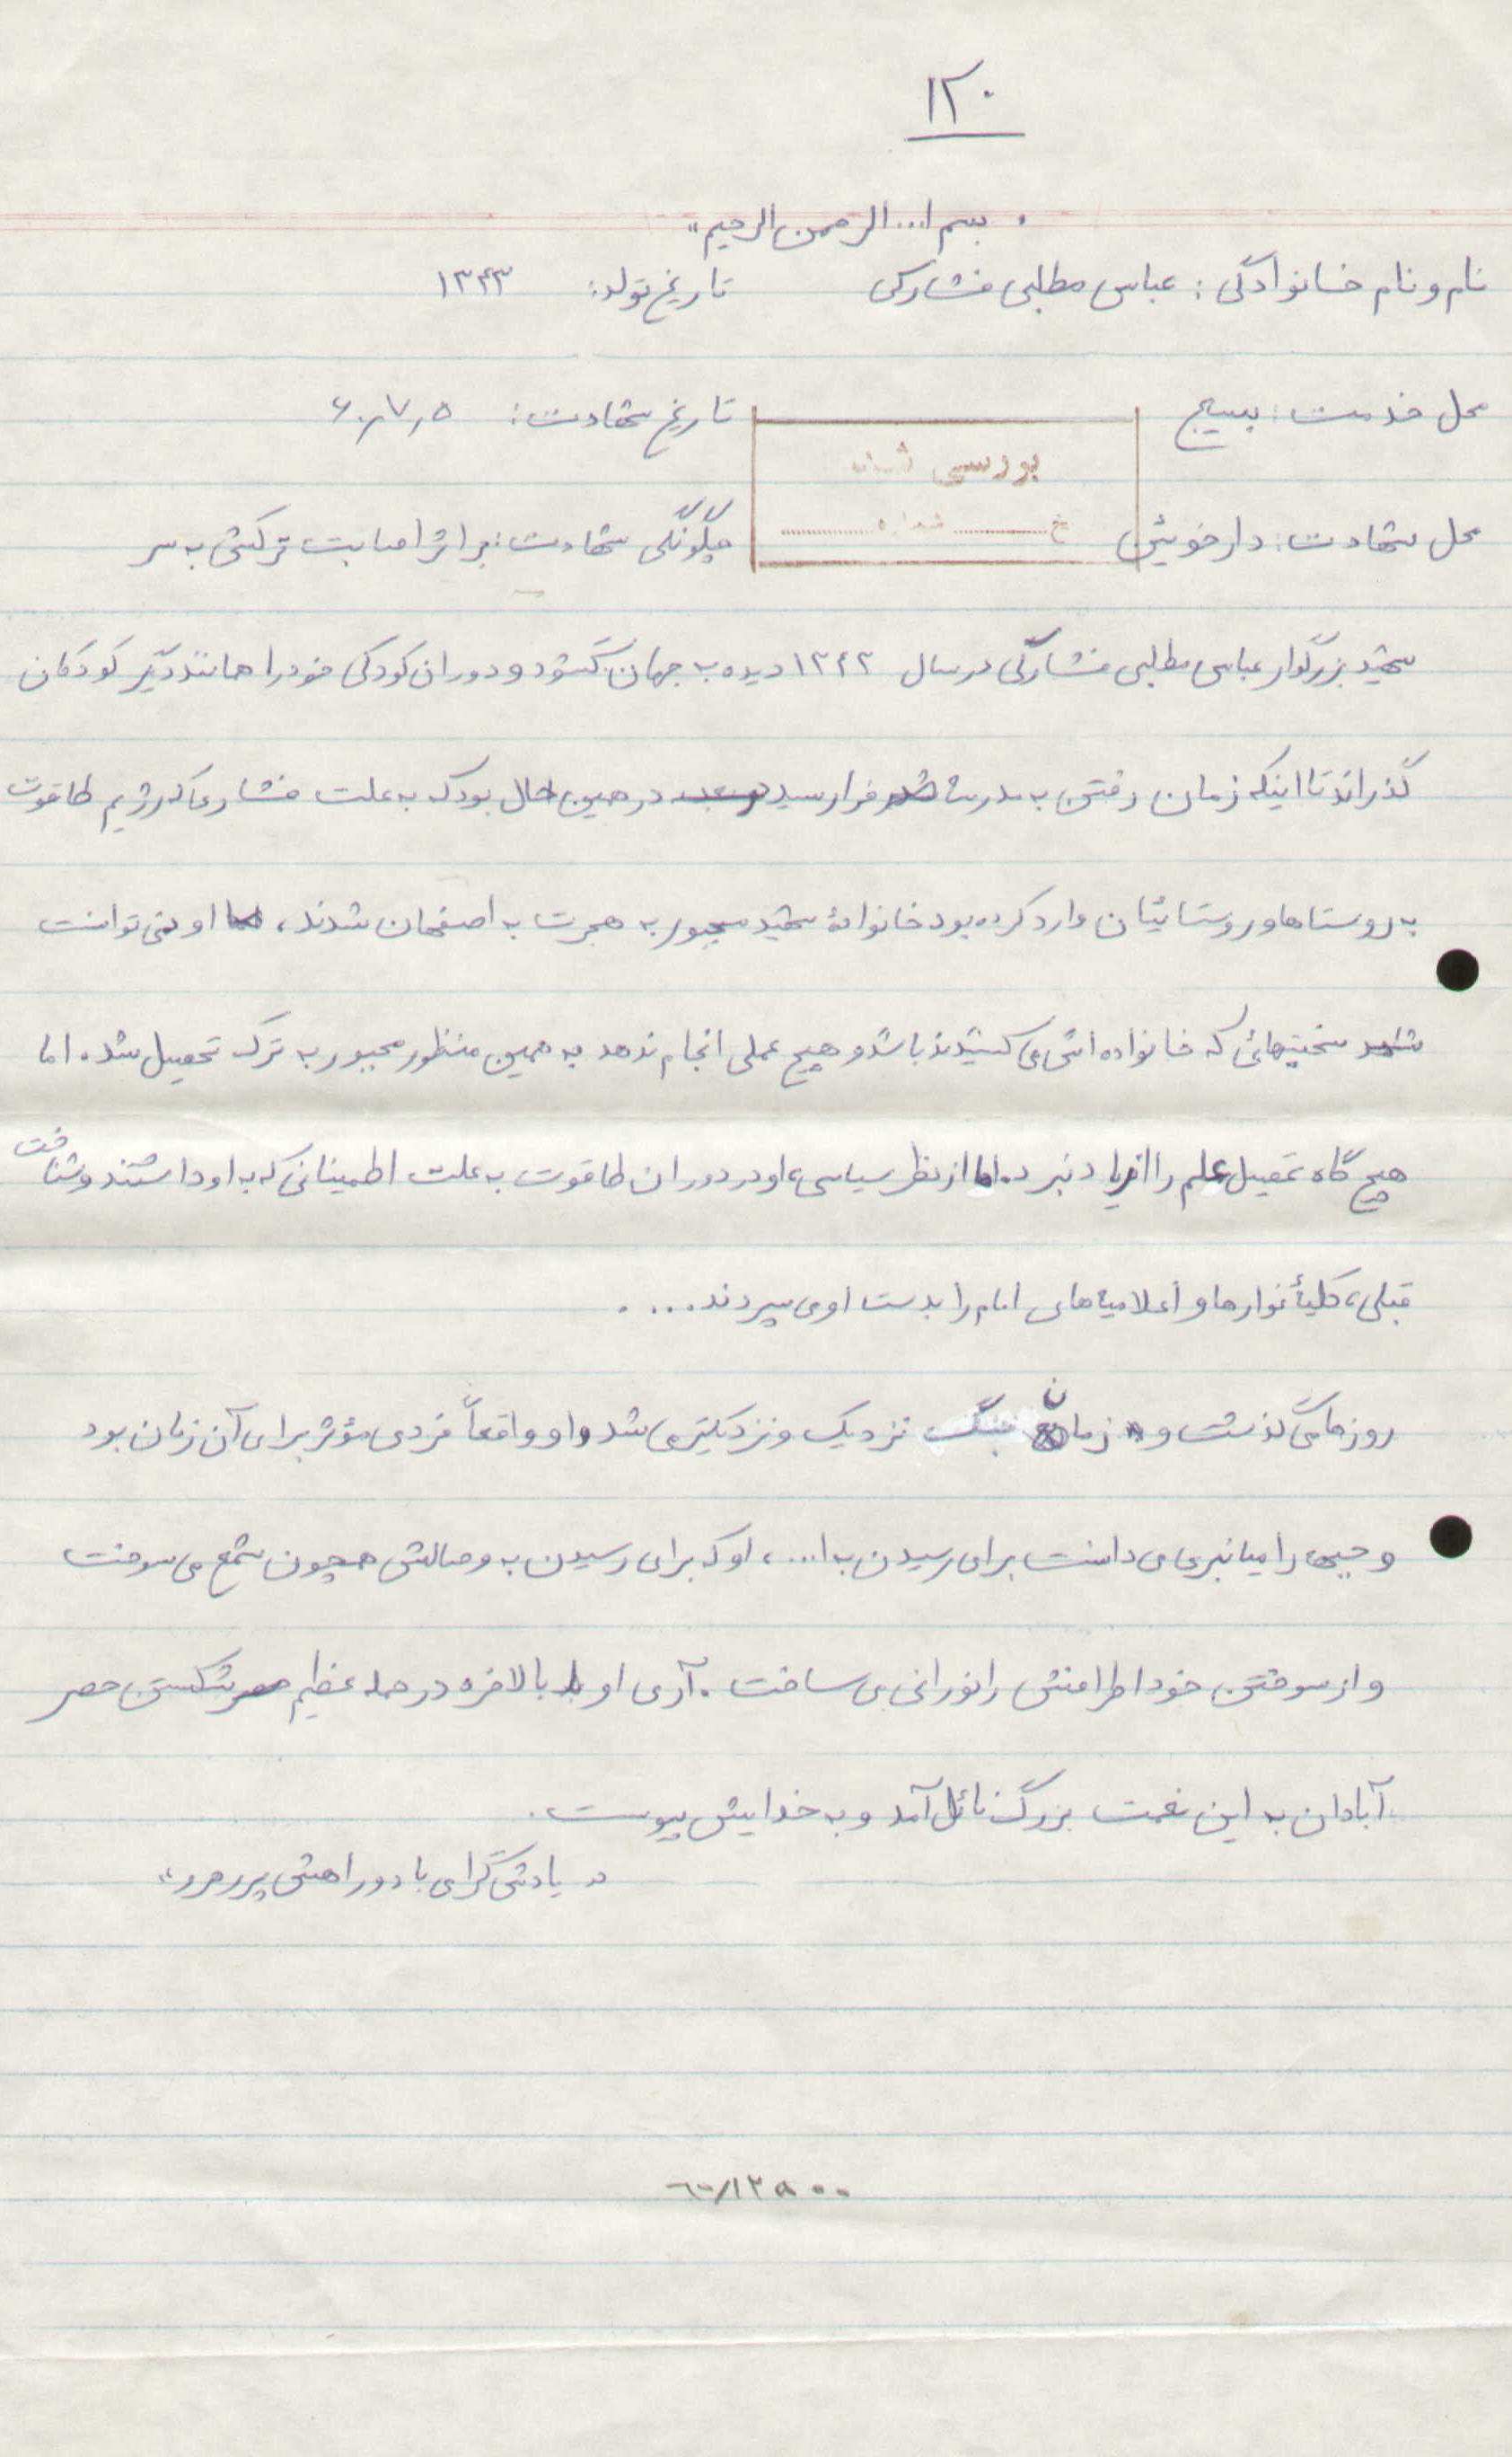 ۱۲۰
« بسم ا... الرحمن الرحیم »
نام و نام خانوادگی : عباس مطلبی فشارکی تاریخ تولد: ۱۳۴۳
محل خدمت : بسیج تاریخ شهادت : ۶۰٫۷٫۵
بررسی شد
محل شهادت : دارخوئین چگونگی شهادت : بر اثر اصابت ترکش به سر
شماره
شهید بزرگوار عباس مطلبی فشارکی در سال ۱۳۴۳ دیده به جهان گشود و دوران کودکی خود را همانند دیگر کودکان
گذراند تا اینکه زمان رفتن به مدرسه فرا رسید در همین حال بود که به علت فشارهایی که رژیم طاغوت
به روستاها و روستائیان وارد کرده بود خانوادهٔ شهید مجبور به هجرت به اصفهان شدند ، او نمی توانست
شاهد سختیهائی که خانواده اش می کشیدند باشد و هیچ عملی انجام ندهد به همین منظور مجبور به ترک تحصیل شد . اما
هیچ گاه تحصیل علم را از یاد نبرد . اما از نظر سیاسی ، او در دوران طاغوت به علت اطمینانی که به او داشتند و شناخت
قبلی ، کلیهٔ نوارها و اعلامیه های امام را بدست او می سپردند . . . .
روزها می گذشت و زمان جنگ نزدیک و نزدیکتر می شد و او واقعاً فردی مؤثر برای آن زمان بود
و جبهه را میانبری می دانست برای رسیدن به ا... ، او که برای رسیدن به وصالش همچون شمع می سوخت
و از سوختن خود اطرافش را نورانی می ساخت . آری او بالاخره در حمله عظیم شکستن حصر
آبادان به این نعمت بزرگ نائل آمد و به خدایش پیوست .
« یادش گرامی باد و راهش پر رهرو »
۶۰/۱۲۹۰۰